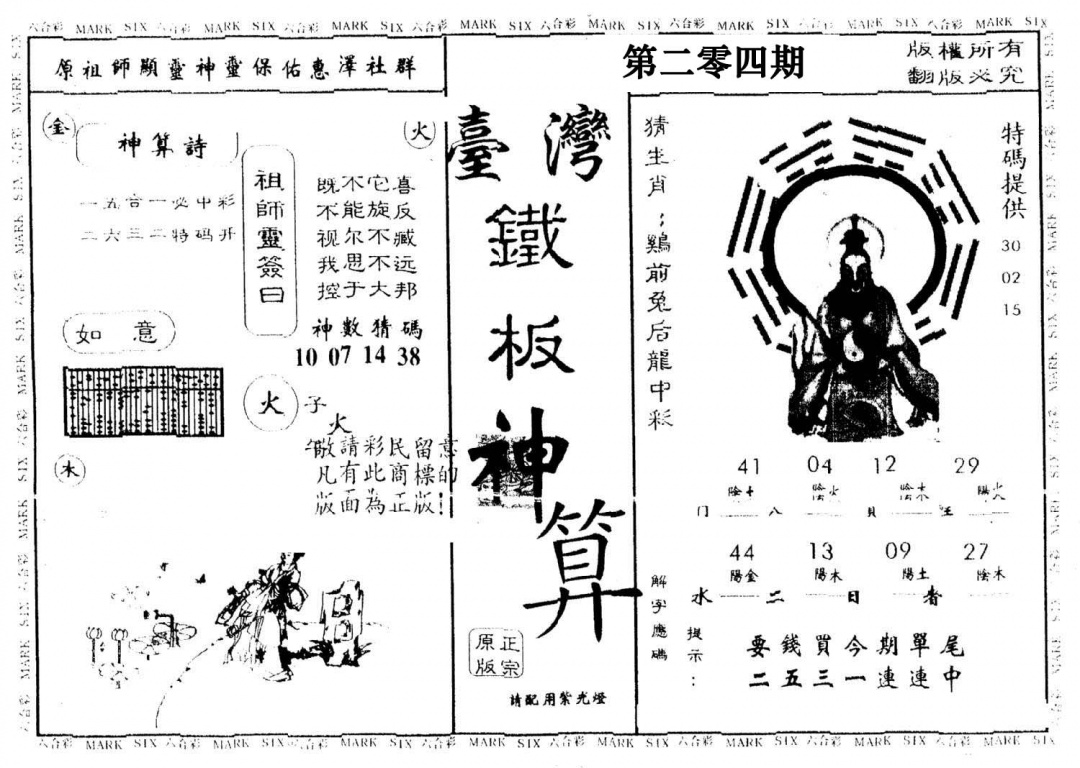 六合彩 MARK SIX 六合彩 MARK SIX 六合彩 MARK SIX 六合彩 MARK SIX 六合彩 MARK SIX 六合彩 MARK SIX 六合彩 MARK SIX 六合彩 MARK SIX
原祖師顯靈神靈保佑惠澤社群
第二零四期
版權所有
翻版必究
金
火
神算詩
一五合一必中彩
二六三二特码开
祖師靈簽曰
既不它喜
不能旋反
视尔不臧
我思不远
控于大邦
神數猜碼
10 07 14 38
如意
火
子
火
敬請彩民留意
凡有此商標的
版面為正版!
木
臺灣
鐵
板
神
算
正宗
原版
請配用紫光燈
猜生肖:鷄前兔后龍中彩
特碼提供
30
02
15
41 04 12 29
陰土 陰火 陰木 陽火
门 八 貝 玉
44 13 09 27
陽金 陽木 陽土 陰木
水 二 日 者
解字應碼
提示:
要錢買今期單尾
二五三一連連中
六合彩 MARK SIX 六合彩 MARK SIX 六合彩 MARK SIX 六合彩 MARK SIX 六合彩 MARK SIX 六合彩 MARK SIX 六合彩 MARK SIX 六合彩 MARK SIX